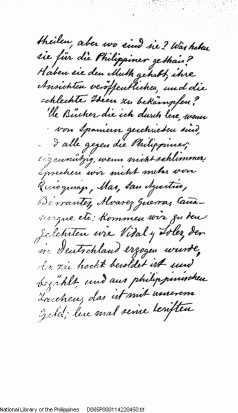 theilen, aber wo sind sie? Was haben
sie für die Philippiner gethan?
Haben sie den Muth gehabt, ihre
Ansichten veröffentlichen, und die
schlechte Ideen zu bekämpfen?
Alle Bücher die ich durch lese, wenn
von Spaniern geschrieben sind,
sind alle gegen die Philippiner,
eigennützig, wenn nicht schlimmer.
Sprechen wir nicht mehr von
Quioquiap, Mas, San Agustin,
Barrantes, Alvarez Guerra, Caña-
marque etc: kommen wir zu den
gelehrten wie Vidal y Soler, der
in Deutschland erzogen wurde,
der zu hoch besoldet ist und
bezahlt, und aus philippinischen
Taschen, das ist mit unserem
Geld; lese mal seine Schriften
National Library of the Philippines